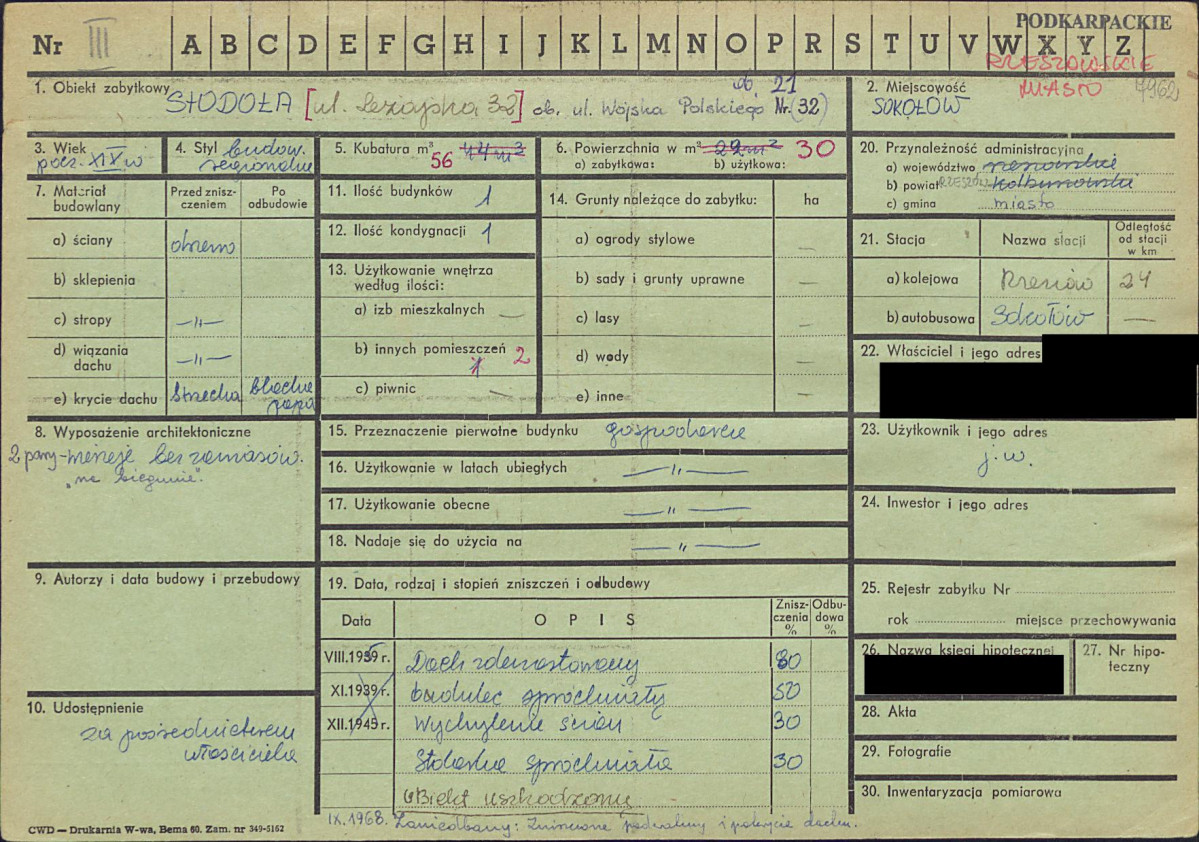 PODKARPACKIE
Nr III A B C D E F G H I J K L M N O P R S T U V W X Y Z
RZESZOWSKIE
MIASTO 1962
1. Obiekt zabytkowy
STODOŁA [ul. Leżajska 32] ob. ul. Wojska Polskiego Nr. (32)
ob. 21
2. Miejscowość
SOKOŁÓW
3. Wiek
pocz. XIX w
4. Styl budow.
regionalne
5. Kubatura m³ 44 m³
56
6. Powierzchnia w m² 22 m² 30
a) zabytkowa: b) użytkowa:
20. Przynależność administracyjna
a) województwo rzeszowskie
b) powiat RZESZÓW kolbuszowski
c) gmina miasto
7. Materiał budowlany
Przed zniszczeniem
Po odbudowie
a) ściany drewno
b) sklepienia
c) stropy —„—
d) wiązania dachu —„—
e) krycie dachu strzecha blacha papa
11. Ilość budynków 1
12. Ilość kondygnacji 1
13. Użytkowanie wnętrza
według ilości:
a) izb mieszkalnych —
b) innych pomieszczeń 1 2
c) piwnic —
14. Grunty należące do zabytku: ha
a) ogrody stylowe —
b) sady i grunty uprawne —
c) lasy —
d) wody
e) inne —
21. Stacja
Nazwa stacji
Odległość od stacji w km
a) kolejowa Rzeszów 24
b) autobusowa Sokołów —
22. Właściciel i jego adres
8. Wyposażenie architektoniczne
2 pary bez zawiasów.
„na biegunie".
15. Przeznaczenie pierwotne budynku gospodarcze
16. Użytkowanie w latach ubiegłych —„—
17. Użytkowanie obecne —„—
18. Nadaje się do użycia na —„—
23. Użytkownik i jego adres
j.w.
24. Inwestor i jego adres
9. Autorzy i data budowy i przebudowy
19. Data, rodzaj i stopień zniszczeń i odbudowy
Data
OPIS
Zniszczenia %
Odbudowa %
VIII.1939 r. Dach zdewastowany 80
XI.1939 r. budulec spróchniały 50
XII.1945 r. Wychylenie ścian 30
Stolarka spróchniała 30
Obiekt uszkodzony
25. Rejestr zabytku Nr
rok miejsce przechowywania
26. Nazwa księgi hipotecznej
27. Nr hipoteczny
28. Akta
29. Fotografie
30. Inwentaryzacja pomiarowa
10. Udostępnienie
za pośrednictwem
właściciela
CWD — Drukarnia W-wa, Bema 60. Zam. nr 349-5162
IX.1968. Zaniedbany: Zniszczone podwaliny i pokrycie dachu.